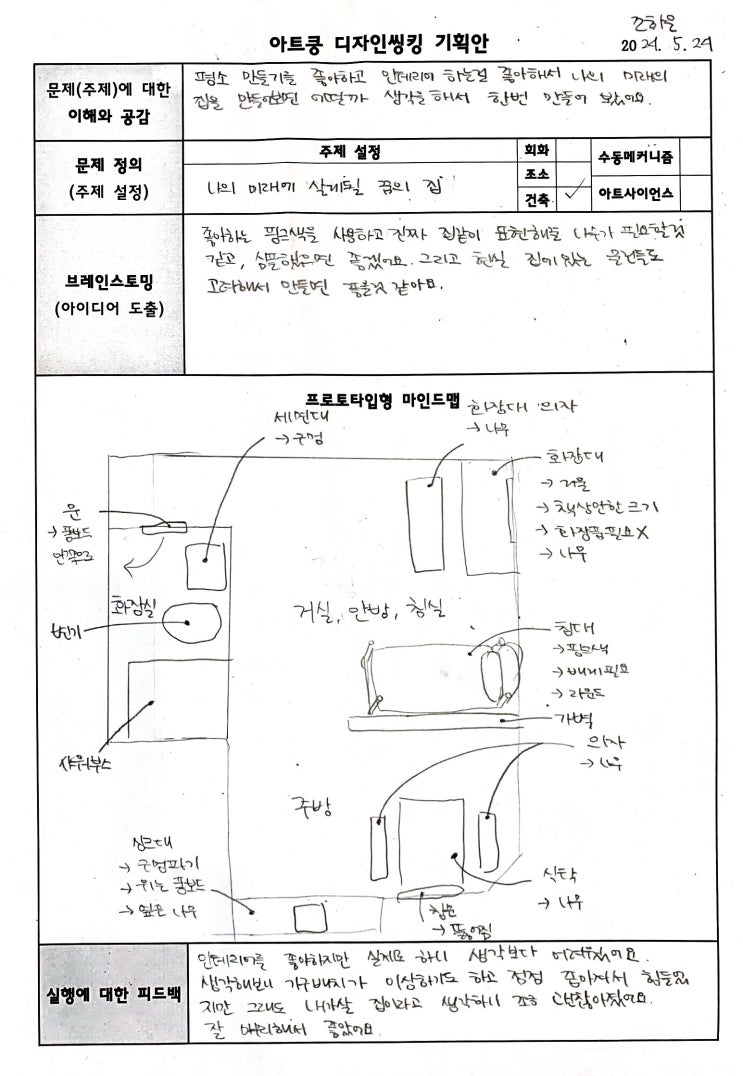 조하은
아트쿵 디자인씽킹 기획안
2024. 5. 24
문제(주제)에 대한
이해와 공감
평소 만들기를 좋아하고 인테리어 하는걸 좋아해서 나의 미래의
집을 만들어보면 어떨까 생각을 해서 한번 만들어 봤어요.
문제 정의
(주제 설정)
주제 설정
나의 미래에 살게될 꿈의 집
회화
조소
건축 ✓
수동메커니즘
아트사이언스
브레인스토밍
(아이디어 도출)
좋아하는 핑크색을 사용하고 진짜 집같이 표현해볼 나무가 필요할것
같고, 심플했으면 좋겠어요. 그리고 현실 집에 있는 물건들도
고려해서 만들면 좋을것 같아요.
프로토타입형 마인드맵
세면대
→ 구멍
화장대 의자
→ 나무
화장대
→ 거울
→ 책상만한 크기
→ 화장품필요 X
→ 나무
문
→ 폼보드
안쪽으로
화장실
변기
샤워부스
거실, 안방, 침실
침대
→ 핑크색
→ 배게 필요
→ 라운드
가벽
의자
→ 나무
주방
싱크대
→ 구멍파기
→ 위는 폼보드
→ 옆은 나무
식탁
→ 나무
창문
→ 뚫어짐
실행에 대한 피드백
인테리어를 좋아하지만 실제로 하니 생각보다 어려웠어요.
생각해보니 가구배치가 이상하기도 하고 점점 좁아져서 힘들었
지만 그래도 내가살 집이라고 생각하니 조금 괜찮아졌어요.
잘 마무리해서 좋았어요.